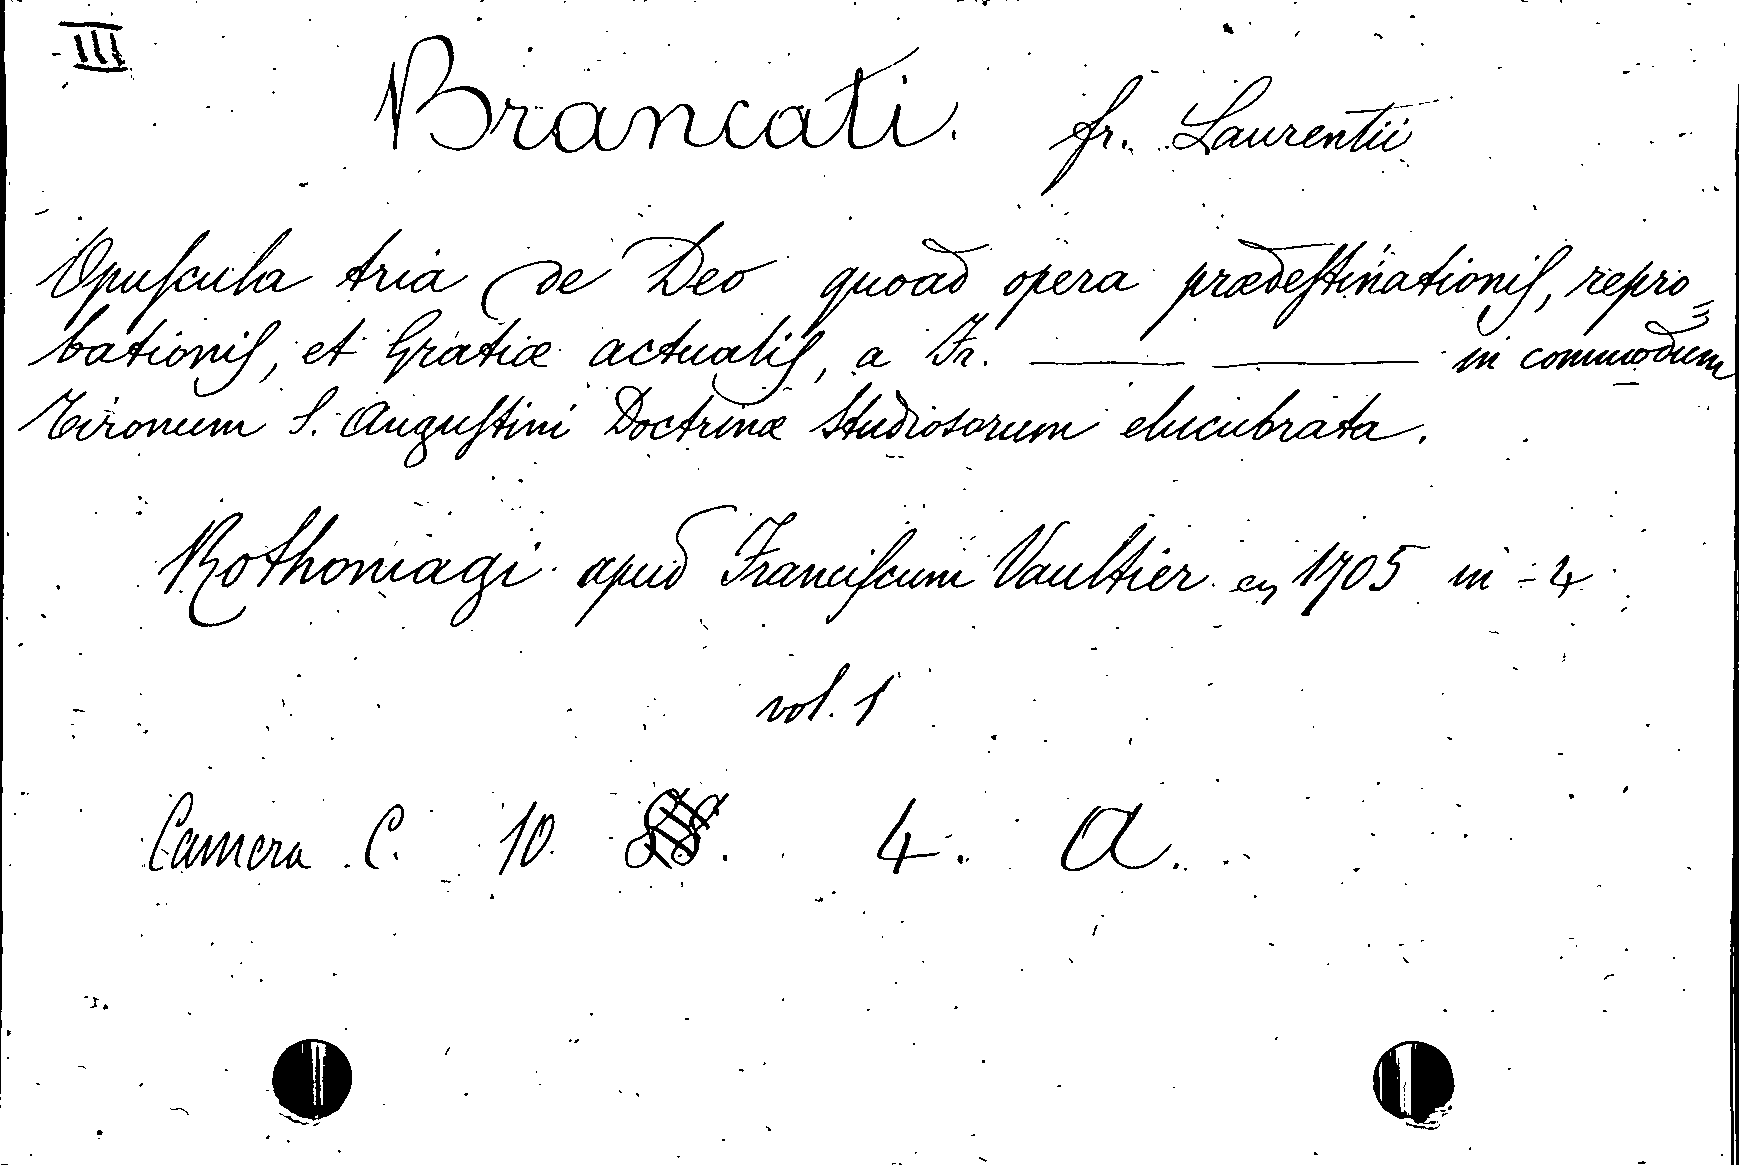 III
Brancati. fr. Laurentii
Opuſcula tria de Deo quoad opera prædeſtinationiſ, repro=
bationiſ, et Gratiæ actualiſ, a Fr. ——— ——— in commodum
Tironum S. Auguſtini Doctrinæ Studiosorum elucubrata.
Rothomagi apud Franciſcum Vaultier en 1705 in-4
vol. 1
Camera C. 10. 4. a.